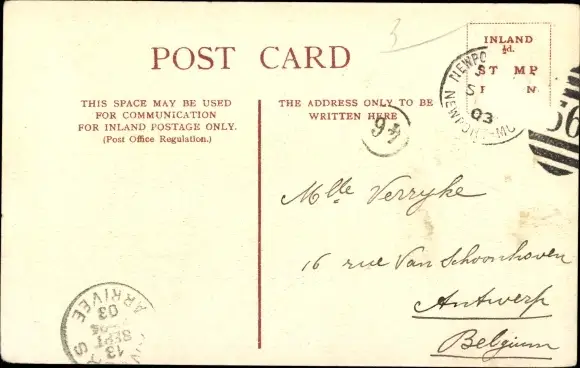 POST CARD
THIS SPACE MAY BE USED
FOR COMMUNICATION
FOR INLAND POSTAGE ONLY.
(Post Office Regulation.)
THE ADDRESS ONLY TO BE
WRITTEN HERE
INLAND
½d.
ST MP
3
NEWPO
S
03
NEWPORT-MO
56
46
Mlle Verryke
16 rue Van Schoonhoven
Antwerp
Belgium
ARRIVEE
03
SEPT
13
S